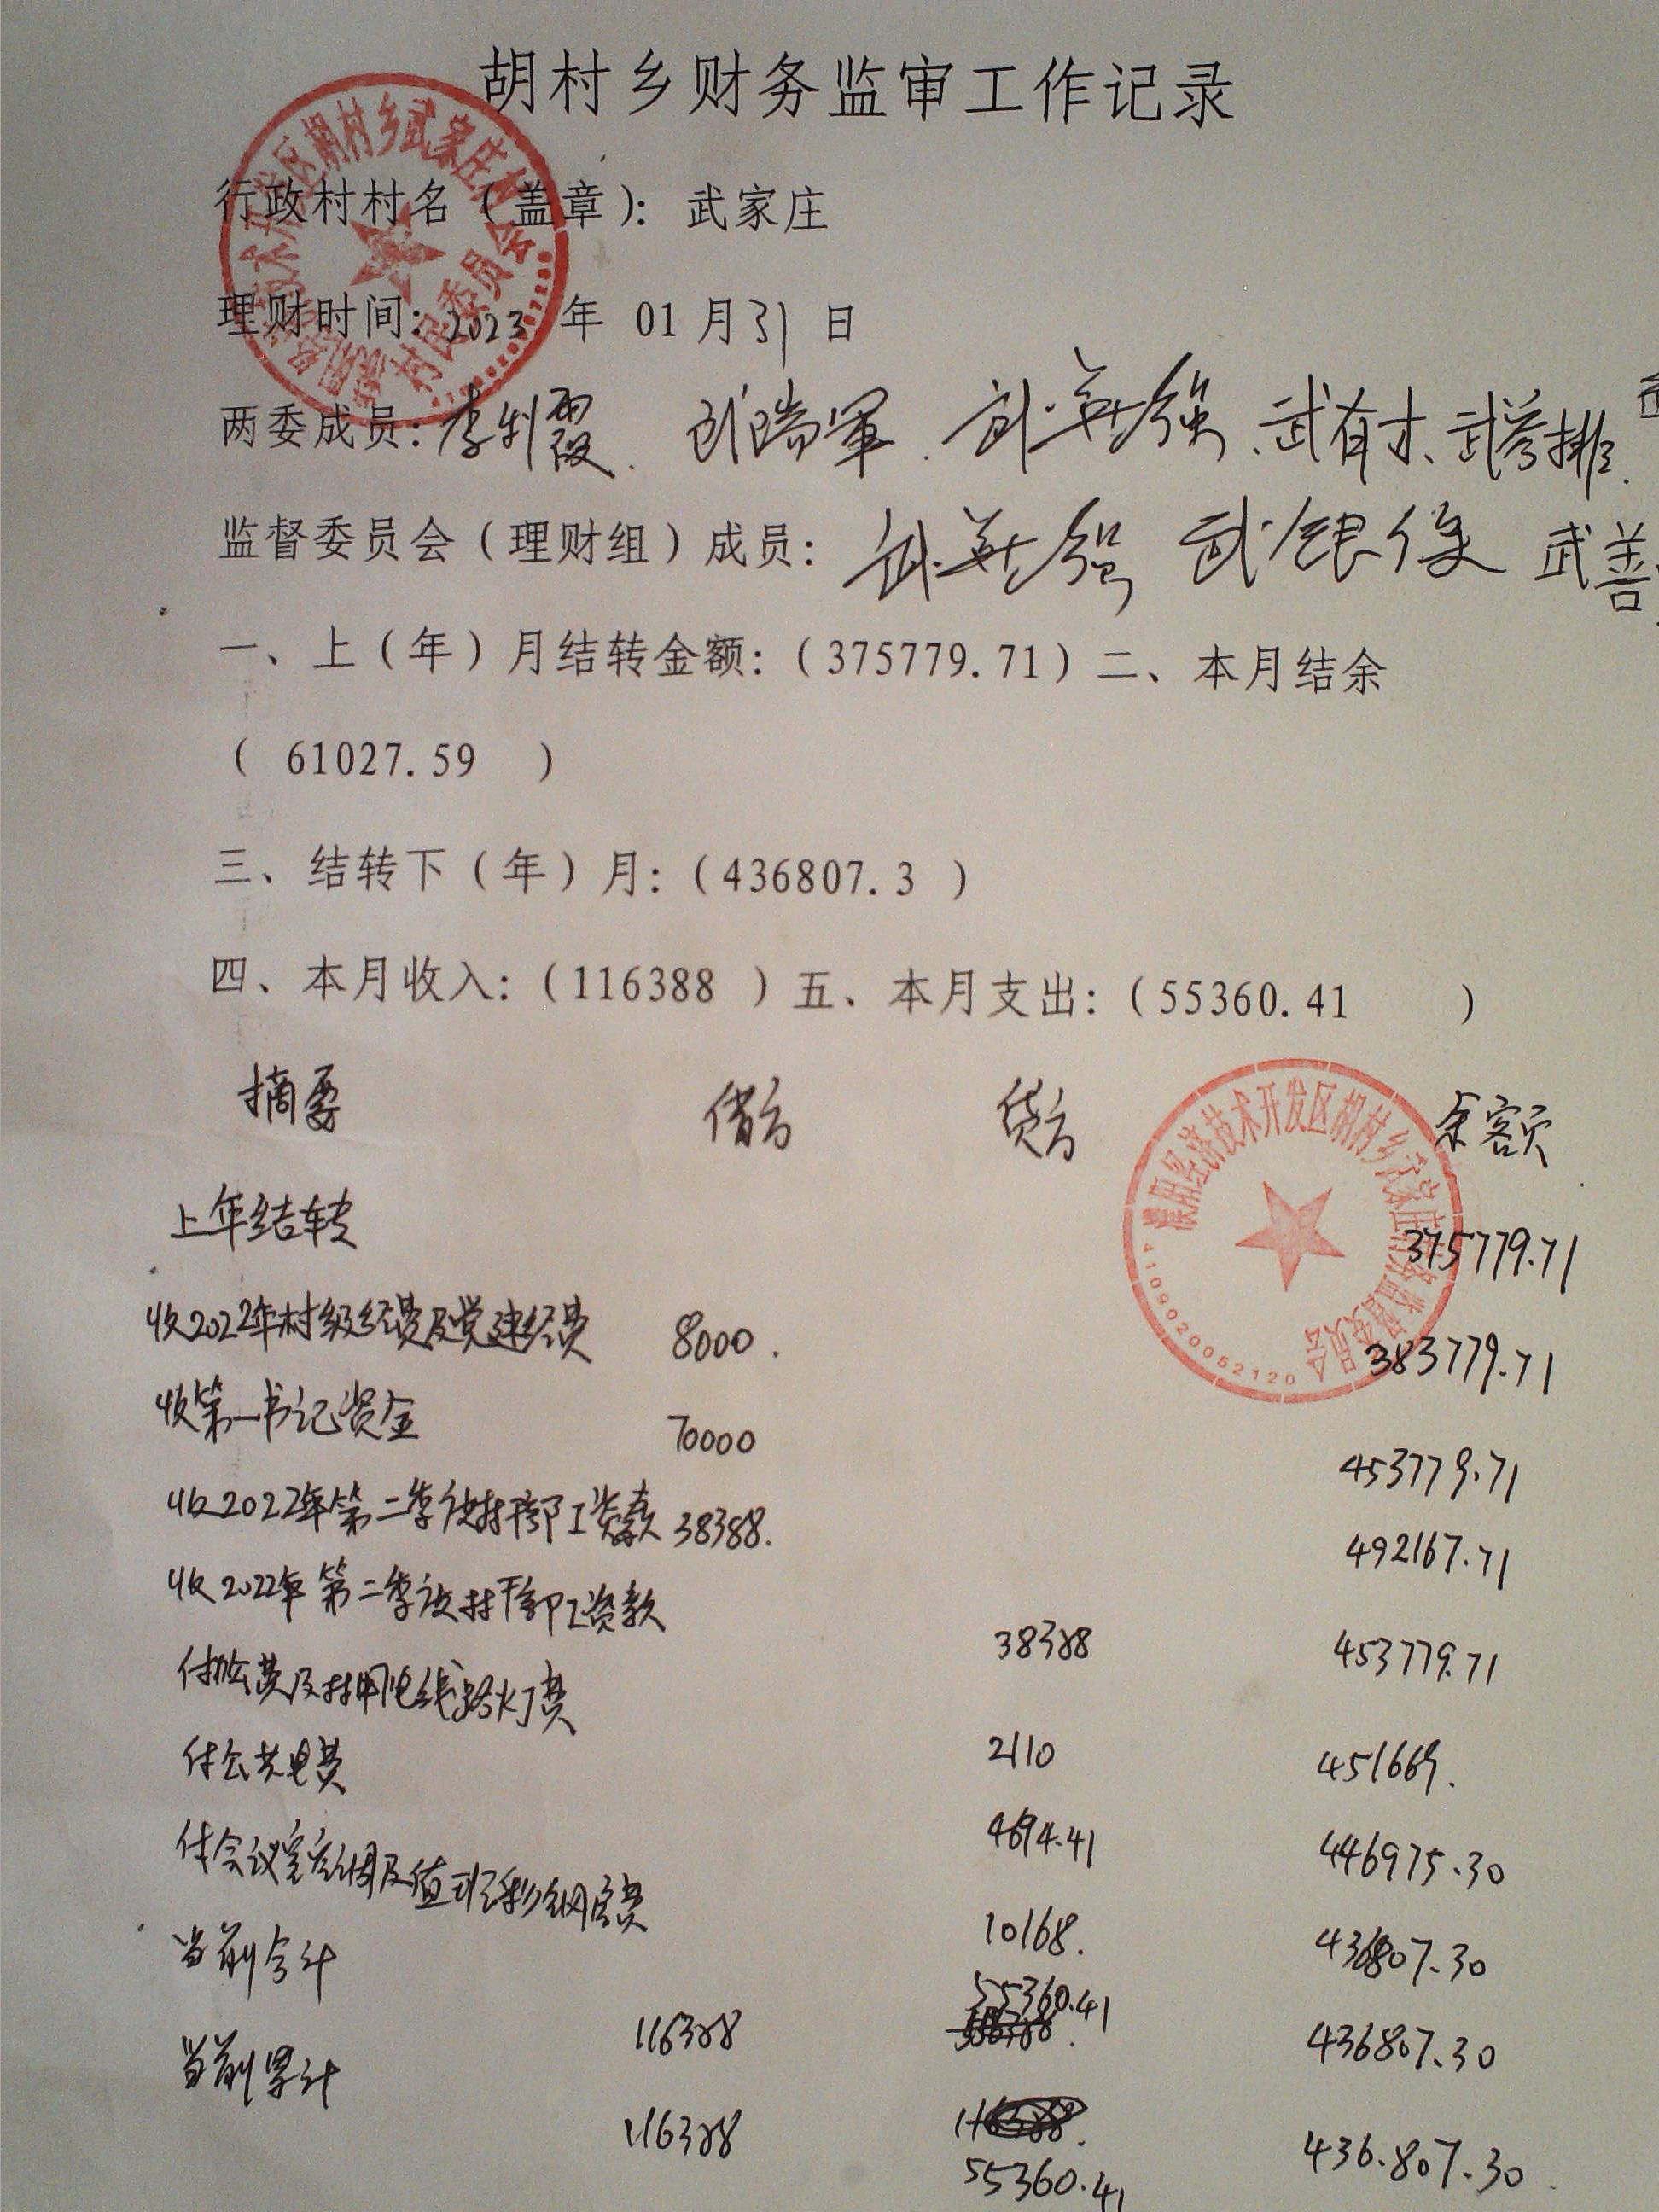 胡村乡财务监审工作记录
行政村村名（盖章）：武家庄
理财时间：2023 年 01 月 31 日
两委成员：李利霞、武瑞军、武英强、武有才、武爹排、
监督委员会（理财组）成员：武英强 武银俊 武善
一、上（年）月结转金额：（375779.71）二、本月结余
（ 61027.59 ）
三、结转下（年）月：（436807.3 ）
四、本月收入：（116388 ）五、本月支出：（55360.41 ）
摘要 借方 贷方 余额
濮阳经济技术开发区胡村乡武家庄村务监督委员会
4109020052120
上年结转 375779.71
收2022年村级经费及党建经费 8000. 383779.71
收第一书记资金 70000 453779.71
收2022年第二季度村干部工资款 38388. 492167.71
收2022年第二季度村干部工资款 38388 453779.71
付办公费及村用电线路灯费 2110 451669.
付公共电费 4694.41 446975.30
付会议室空调及值班彩钢房费 10168. 436807.30
当前合计 116388 55360.41 436807.30
当前累计 116388 55360.41 436.807.30